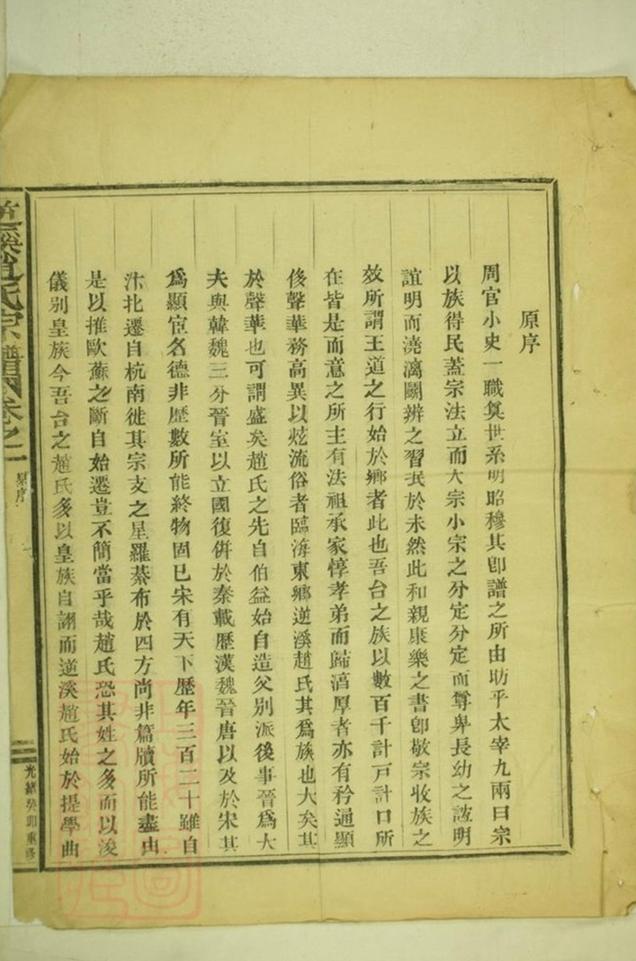 原序
周官小史一職奠世系明昭穆其卽譜之所由昉乎太宰九兩曰宗
以族得民蓋宗法立而大宗小宗之分定分定而尊卑長幼之誼明
誼明而澆漓鬬辨之習泯於未然此和親康樂之書卽敬宗收族之
效所謂王道之行始於鄉者此也吾台之族以數百千計戸計口所
在皆是而意之所主有法祖承家惇孝弟而歸湻厚者亦有矜通顯
侈聲華務高異以炫流俗者臨海東鄉逆溪趙氏其爲族也大矣其
於聲華也可謂盛矣趙氏之先自伯益始自造父別派後事晉爲大
夫與韓魏三分晉室以立國復併於秦載歷漢魏晉唐以及於宋其
爲顯宦名德非歷數所能終物固已宋有天下歷年三百二十雖自
汴北遷自杭南徙其宗支之星羅棊布於四方尚非篇牘所能盡由
是以推歐蘇之斷自始遷豈不簡當乎哉趙氏恐其姓之多而以浚
儀別皇族今吾台之趙氏多以皇族自詡而逆溪趙氏始於提學曲
溪趙氏宗譜 卷之一
原序
光緒癸卯重修